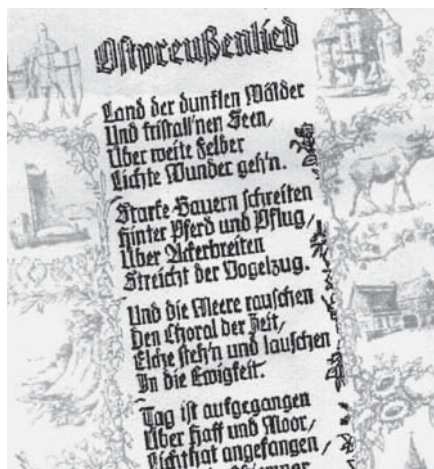 Ostpreußenlied
Land der dunklen Wälder
Und kristall'nen Seen,
Über weite Felder
Lichte Wunder geh'n.
Starke Bauern schreiten
Hinter Pferd und Pflug,
Über Ackerbreiten
Streicht der Vogelzug.
Und die Meere rauschen
Den Choral der Zeit,
Elche steh'n und lauschen
In die Ewigkeit.
Tag ist aufgegangen
Über Haff und Moor,
Licht hat angefangen,